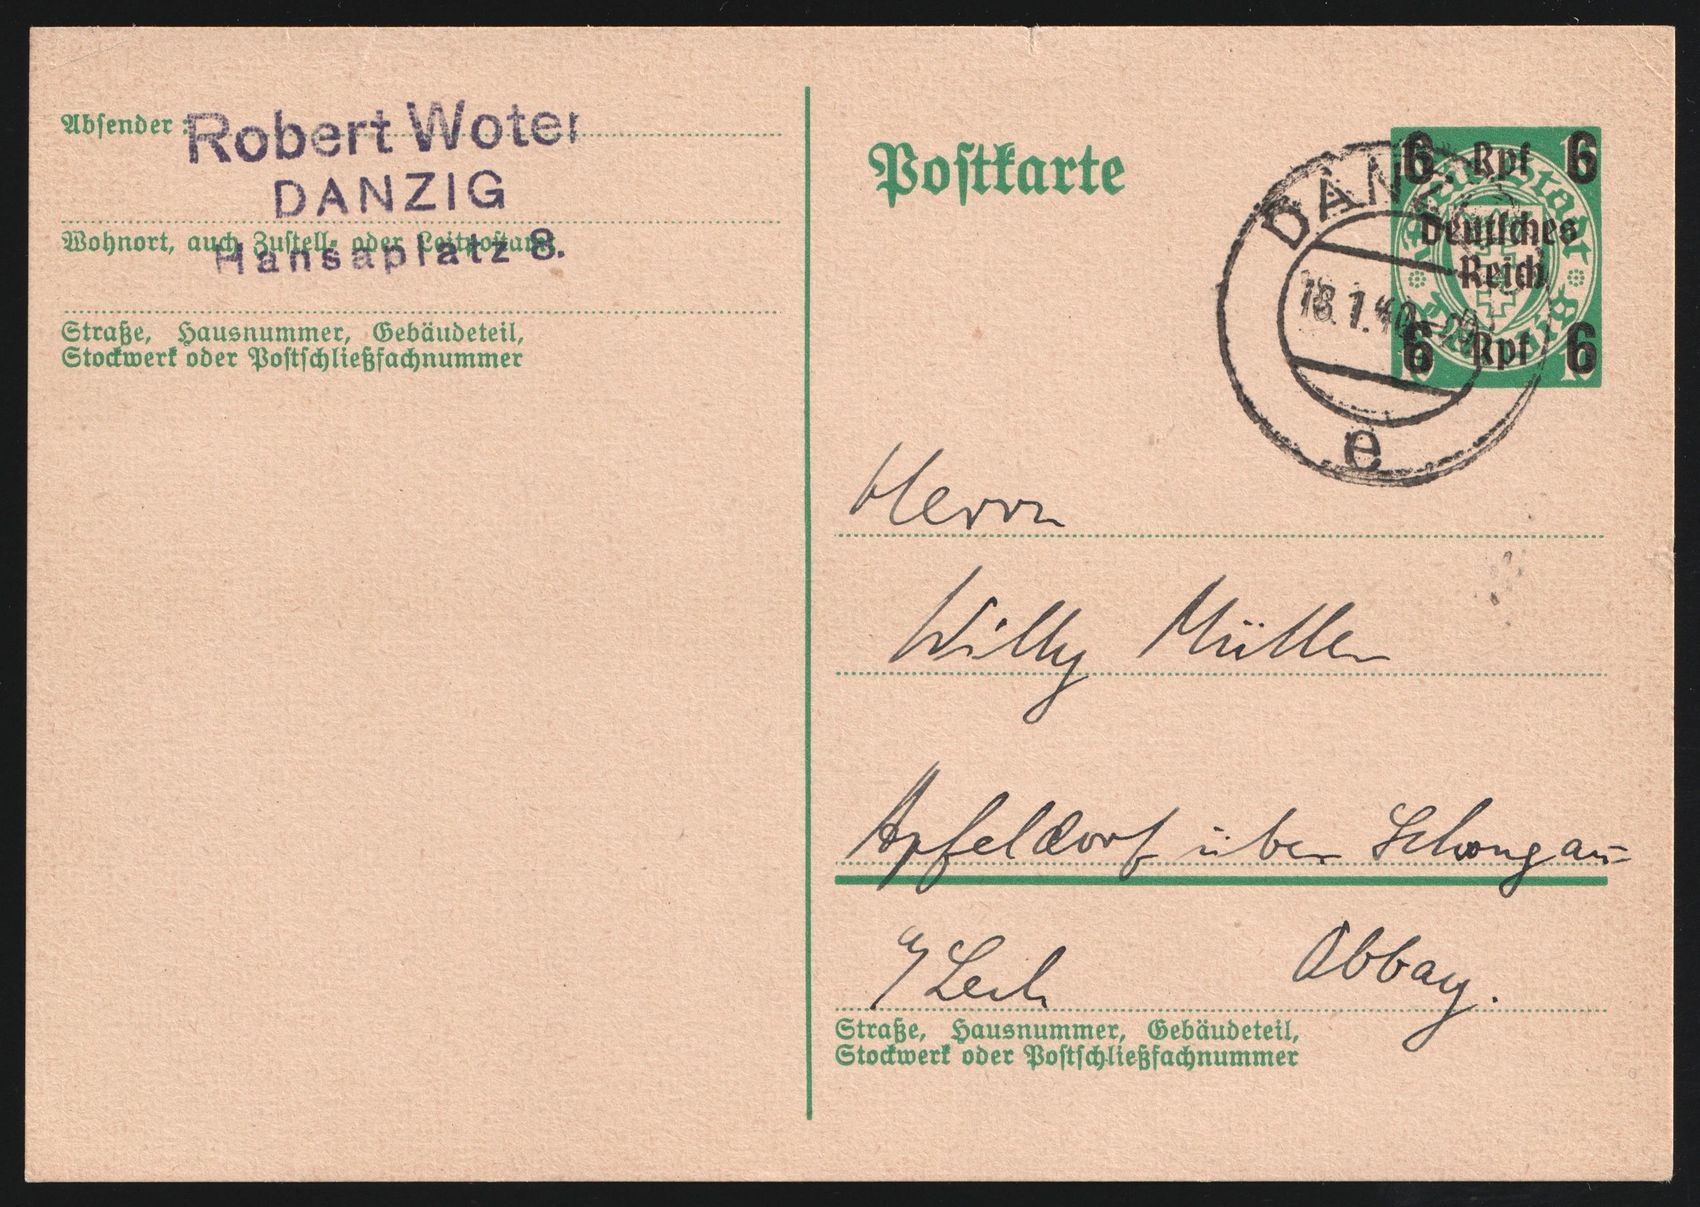 Absender:
Robert Woter
DANZIG
Wohnort, auch Zustell- oder Leitpostamt
Hansaplatz 8.
Straße, Hausnummer, Gebäudeteil,
Stockwerk oder Postschließfachnummer
Postkarte
6 Rpf 6
Deutsches
Reich
6 Rpf 6
DANZIG
18.1.40
e
Herrn
Willy Müller
Apfeldorf über Schongau
a/Lech Obbay.
Straße, Hausnummer, Gebäudeteil,
Stockwerk oder Postschließfachnummer